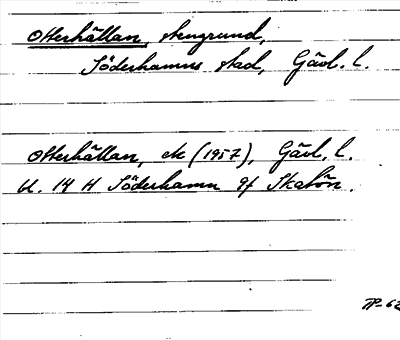 Otterhällan, stengrund,
Söderhamns stad, Gävl. l.
Otterhällan, ek (1957), Gävl. l.
bl. 14 H Söderhamn 9f Skatön.
TP-62